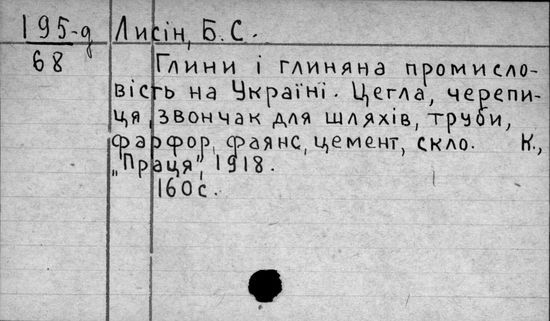 195-д Лисін, Б.С.
68
Глини і глиняна промисло-
вість на Україні. Цегла, черепи-
ця, звончак для шляхів, труби,
фарфор, фаянс, цемент, скло. К.,
„Праця", 1918.
160с.